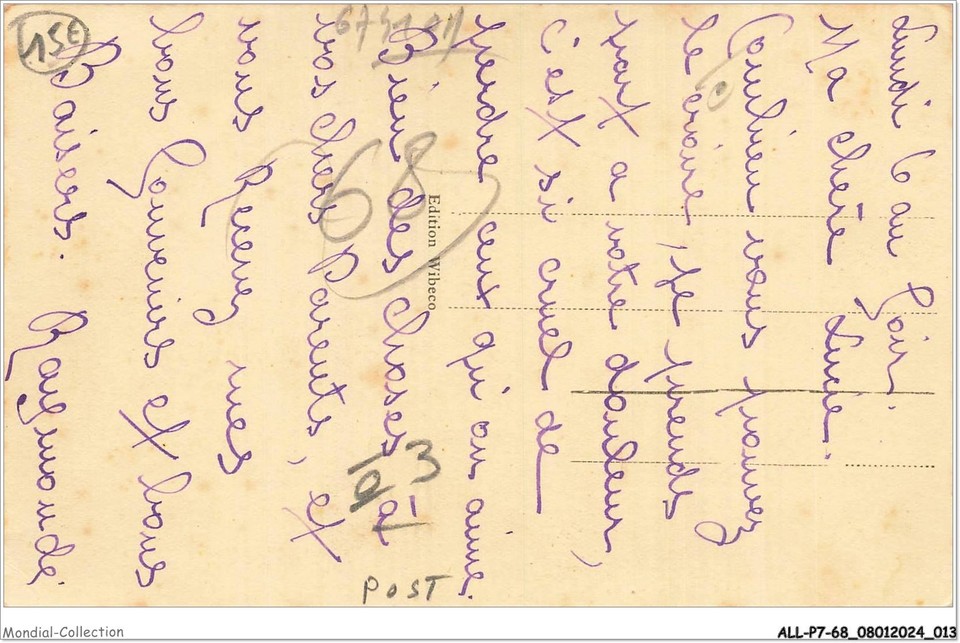 Lundi 6 au soir.
Ma chère Lucie.
Combien vous pouvez
le croire, je prends
part a votre douleur,
c'est si cruel de
perdre ceux qui on aime.
Bien des choses à
vos chers Parents, et
vous Recevez mes
bons Souvenirs et bons
Baisers. Raymonde.
Edition Wibeco
15€
68
3
POST
Mondial-Collection
ALL-P7-68_08012024_013